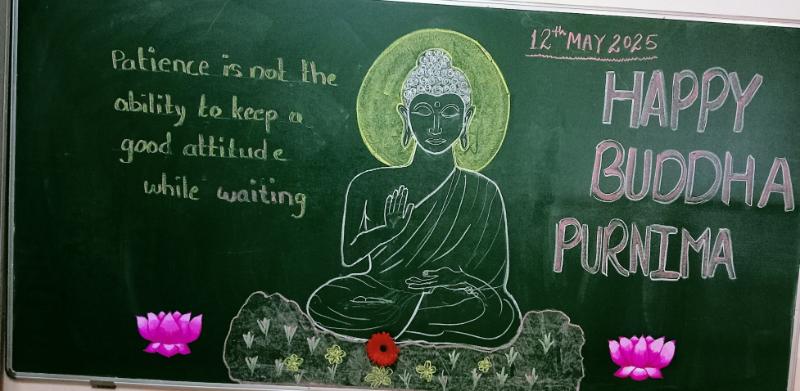 Patience is not the
ability to keep a
good attitude
while waiting
12th MAY 2025
HAPPY
BUDDHA
PURNIMA